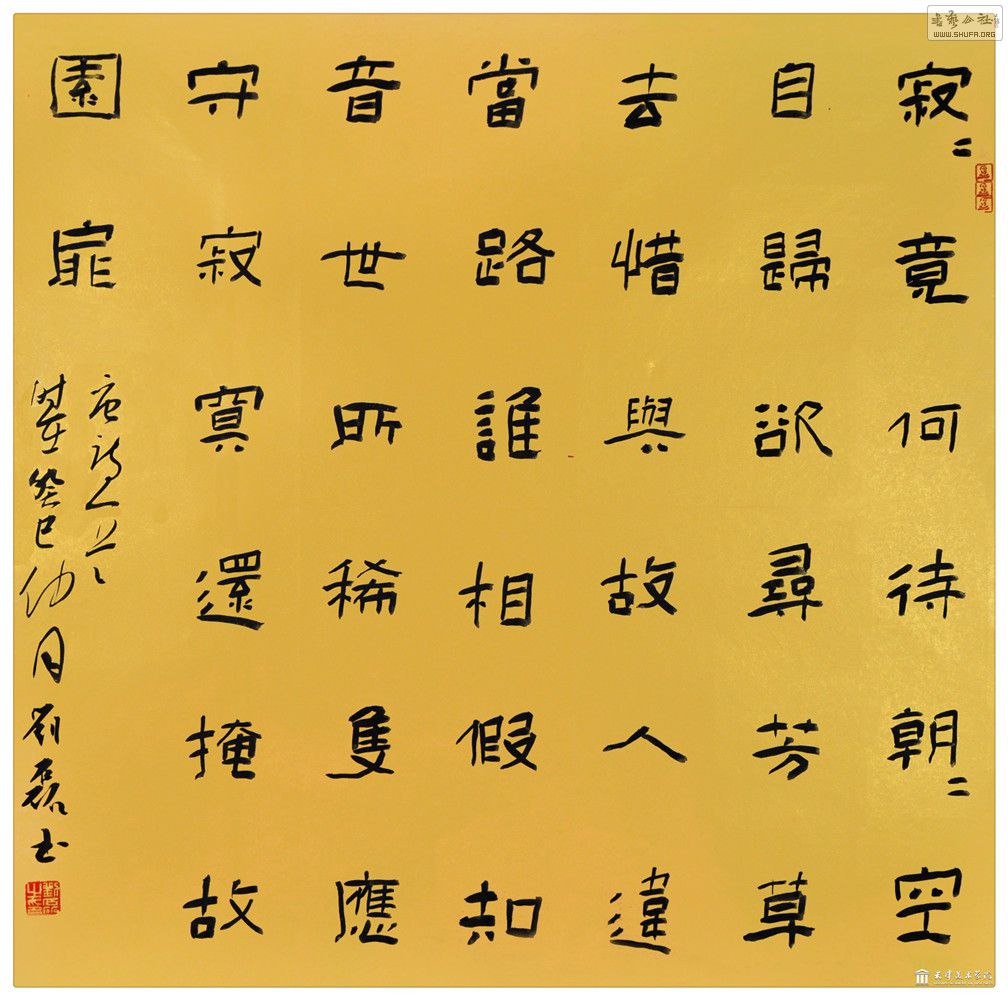 寂〻竟何待朝〻空
自歸欲尋芳草
去惜與故人違
當路誰相假知
音世所稀隻應
守寂寞還掩故
園扉
唐詩一首
時在癸巳仲月劉磊书
书艺公社
WWW.SHUFA.ORG
天津美术学院